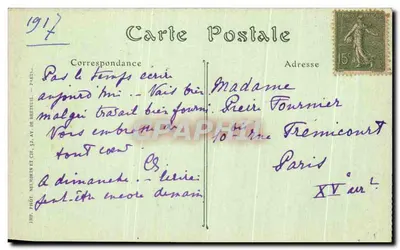 1917
Carte Postale
Correspondance
Adresse
Pas le temps écrire
aujourd'hui -- Vais bien
malgré travail bien fourni
Vous embrasse
tout cœur
A dimanche -- Ecrirai
peut-être encore demain
Madame
Pierre Fournier
10 bis rue Trémicourt
Paris
XVe arrt
15